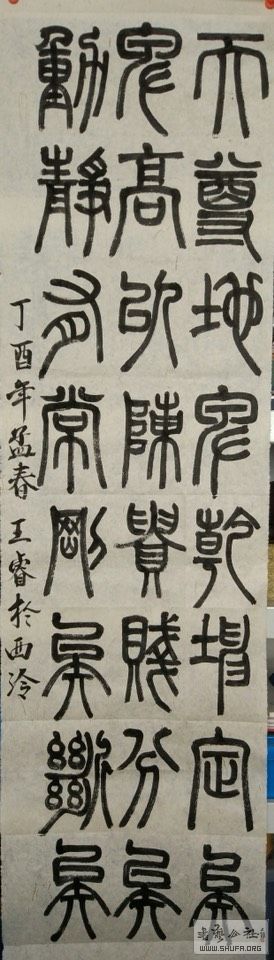 天尊地卑乾坤定矣
卑高以陳貴賤分矣
動靜有常剛矣斷矣
丁酉年孟春王睿於西泠
书法公社
WWW.SHUFA.ORG